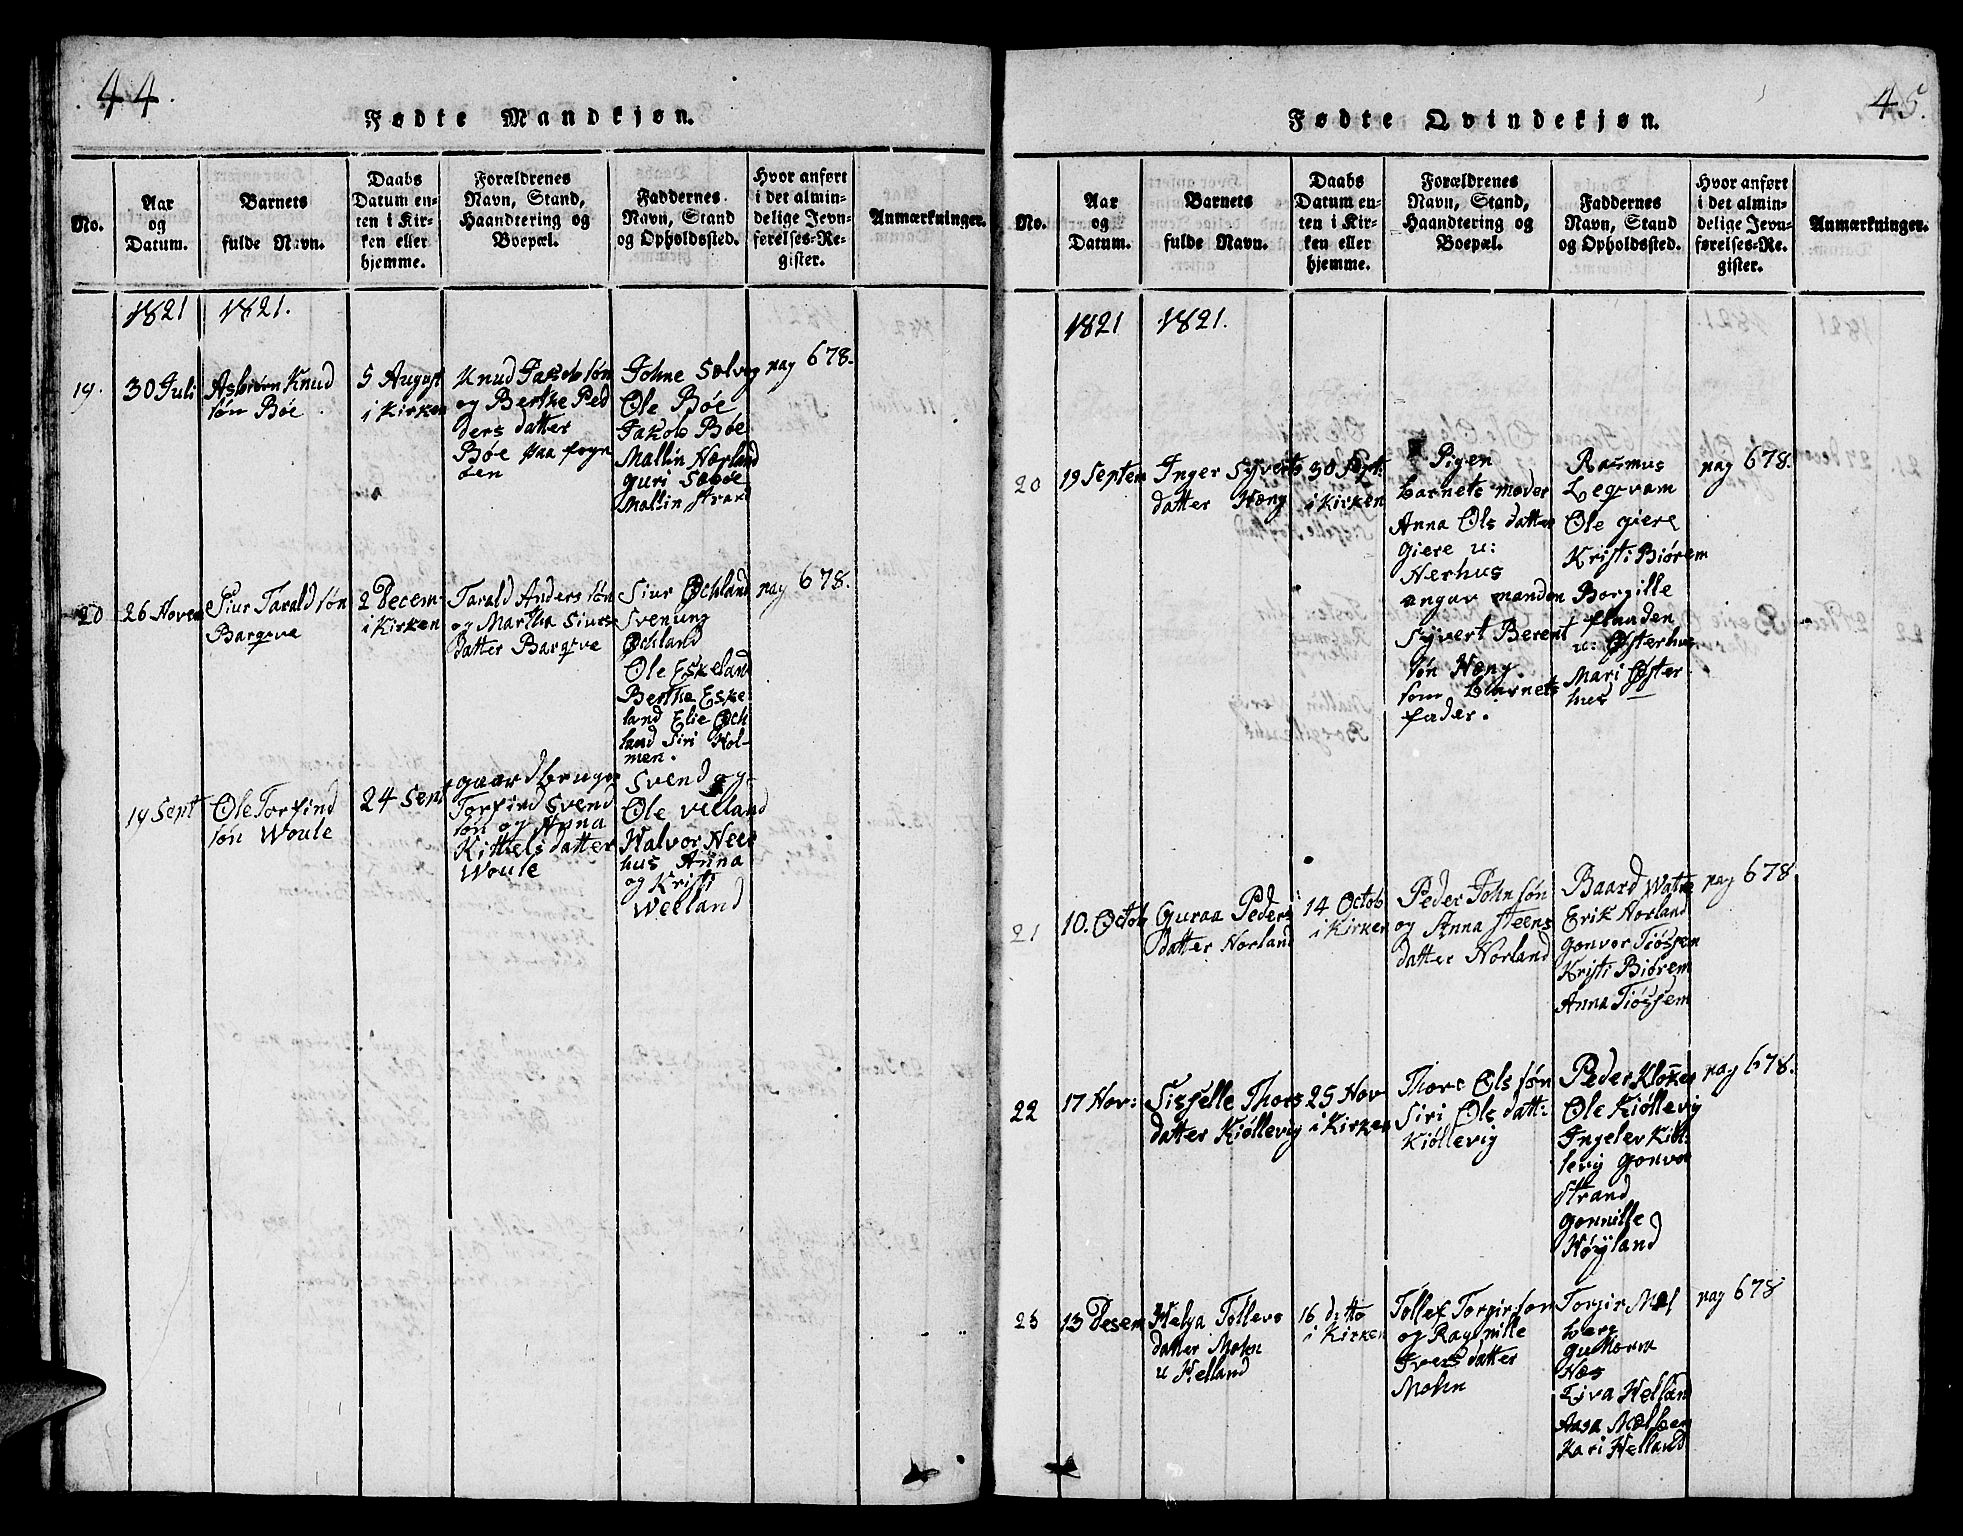 44.
Fødte Mandkjøn.
No.
Aar
og
Datum.
Barnets
fulde Navn.
Daabs
Datum en-
ten i Kir-
ken eller
hjemme.
Forældrenes
Navn, Stand,
Haandtering og
Boepæl.
Faddernes
Navn, Stand
og Opholdssted.
Hvor anført
i det almin-
delige Jevn-
førelses-Re-
gister.
Anmærkninger.
1821
1821.
19.
30 Juli
Asbiørn Knud
søn Bøe
5 August
i Kirken
Knud Jakobsøn
og Berthe Ped
ders datter
Bøe paa fogn
øen
Johne Sælvig
Ole Bøe
Jakob Bøe
Mallin Norland
Guri Sæbøe
Mallin Strand
pag 678.
20
26 Novem
Siur Tarald søn
Bargeve
2 Decem-
i Kirken
Tarald Anders søn
og Martha Siurs
datter Bargeve
Siur Øchland
Svenung
Øchland
Ole Eskeland
Berthe Eske
land Elie Øch
land Siri Hol-
men.
pag 678.
14 Sept
Ole Torfind
søn Woule
24 Sept
gaardbruger
Torfind Svend
søn og Anna
Kittels datter
Woule
Svend og
Ole Velland
Halvor Neer
hus Anna
og Kristi
Welland
45.
Fødte Qvindekjøn.
No.
Aar
og
Datum.
Barnets
fulde Navn.
Daabs
Datum en-
ten i Kir-
ken eller
hjemme.
Forældrenes
Navn, Stand,
Haandtering og
Boepæl.
Faddernes
Navn, Stand
og Opholdssted.
Hvor anført
i det almin-
delige Jevn-
førelses-Re-
gister.
Anmærkninger.
1821
1821.
20
19 Septem
Inger Syverts
datter Hæng
30 Sept:
i Kirken
Pigen
barnets moder
Anna Ols datter
Giere u:
Nerhus
angav manden
Syvert Berent
søn Hæng
som barnets
fader.
Rasmus
Legevam
Ole Giere
Kristi Biørem
Borgille
pladen
u: Østerhus
Mari Øster
hus
pag 678.
21
10. Octob
Guraa Peders
datter Norland
14 Octob
i Kirken
Peder Johnsøn
og Anna Steens
datter Norland
Baard Watne
Erik Norland
Gonvor Tiøssem
Kristi Biørem
Anna Tiøssem
pag 678
22
17 Nov:
Sisselle Thors
datter Kiøllevig
25 Nov
i Kirken
Thore Ols søn
Siri Ols datt:
Kiøllevig
Peder Kloker
Ole Kiøllevig
Ingelev Kiøl-
levig Gonvor
Strand
Gonnille
Høyland
pag 678.
23
13 Desem
Helga Tollevs
datter Mohn
u Helland
16 ditto
i Kirken
Tollef Torgirsøn
og Ragnille
Ivers datter
Mohn
Torgir Mæl
berg
Guttorm
Næs
Eiva Helland
Aasa Mælberg
Kari Helland
pag 678